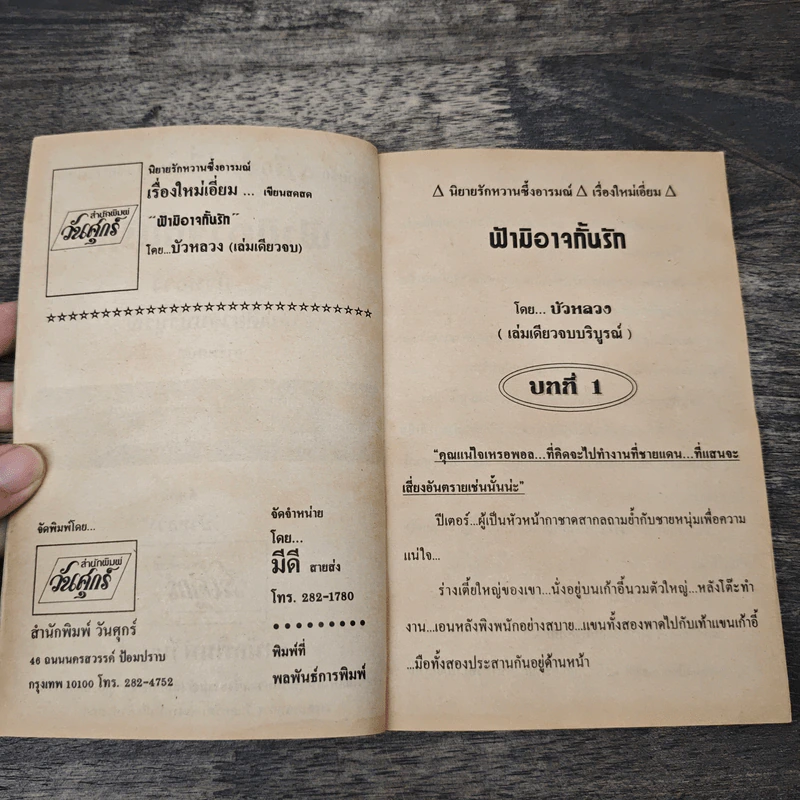 นิยายรักหวานซึ้งอารมณ์
เรื่องใหม่เอี่ยม ... เขียนสดสด
"ฟ้ามิอาจกั้นรัก"
โดย...บัวหลวง (เล่มเดียวจบ)
สำนักพิมพ์
วันศุกร์
☆☆☆☆☆☆☆☆☆☆☆☆☆☆☆☆☆☆☆☆☆☆☆☆☆☆☆☆☆☆
จัดพิมพ์โดย...
สำนักพิมพ์
วันศุกร์
สำนักพิมพ์ วันศุกร์
46 ถนนนครสวรรค์ ป้อมปราบ
กรุงเทพ 10100 โทร. 282-4752
จัดจำหน่าย
โดย...
มีดี สายส่ง
โทร. 282-1780
● ● ● ● ● ● ● ● ●
พิมพ์ที่
พลพันธ์การพิมพ์
Δ นิยายรักหวานซึ้งอารมณ์ Δ เรื่องใหม่เอี่ยม Δ
ฟ้ามิอาจกั้นรัก
โดย... บัวหลวง
( เล่มเดียวจบบริบูรณ์ )
บทที่ 1
"คุณแน่ใจเหรอพอล...ที่คิดจะไปทำงานที่ชายแดน...ที่แสนจะ
เสี่ยงอันตรายเช่นนั้นน่ะ"
ปีเตอร์...ผู้เป็นหัวหน้ากาชาดสากลถามย้ำกับชายหนุ่มเพื่อความ
แน่ใจ...
ร่างเตี้ยใหญ่ของเขา...นั่งอยู่บนเก้าอี้นวมตัวใหญ่...หลังโต๊ะทำ
งาน...เอนหลังพิงพนักอย่างสบาย...แขนทั้งสองพาดไปกับเท้าแขนเก้าอี้
...มือทั้งสองประสานกันอยู่ด้านหน้า